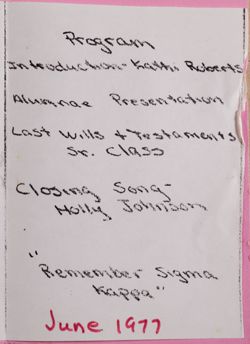 Program
Introduction-Kathi Roberts
Alumnae Presentation
Last Wills & Testaments
Sr. Class
Closing Song-
Holly Johnson
"Remember Sigma
Kappa"
June 1977